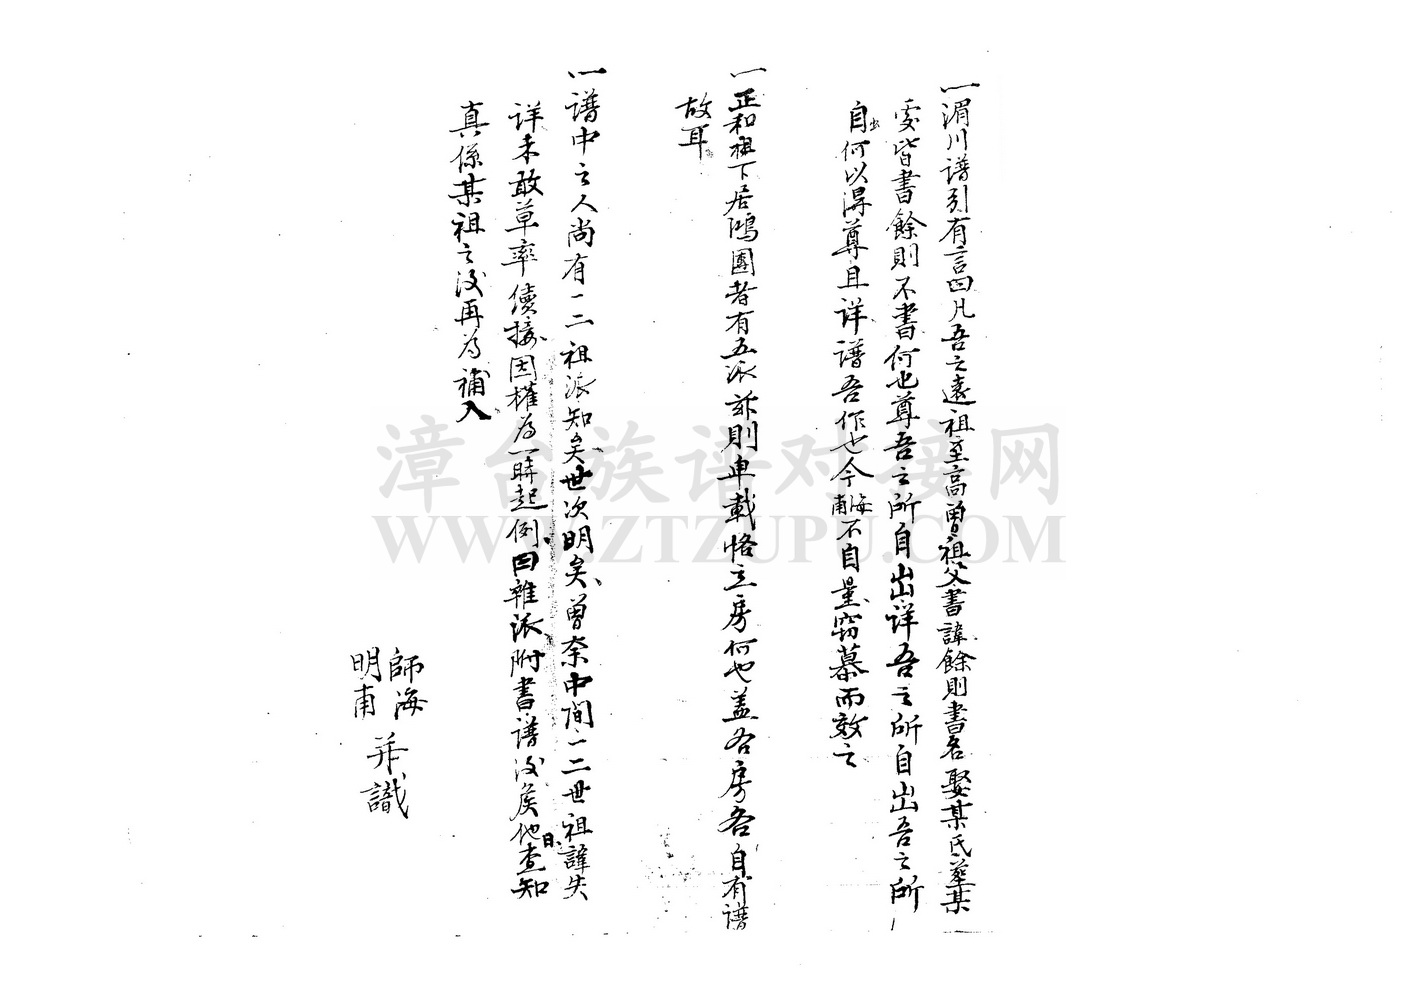 一湄川谱引有言曰凡吾之遠祖至高曽祖父書諱餘則書名娶某氏葬某
處皆書餘則不書何也尊吾之所自出详吾之所自出吾之所
自出何以淂尊且详谱吾作也今海甫不自量窃慕而效之
一正和祖下居鴻團者有五派訴則専載恪立房何也盖各房各自有谱
故耳
一谱中之人尚有一二祖派知矣世次明矣曽奈中间一二世祖諱失
详未敢草率續接因權為一時起例曰雜派附書谱後俟他日查知
真係某祖之後再為補入
師海
明甫
并識
漳台族谱对接网
WWW.ZTZUPU.COM